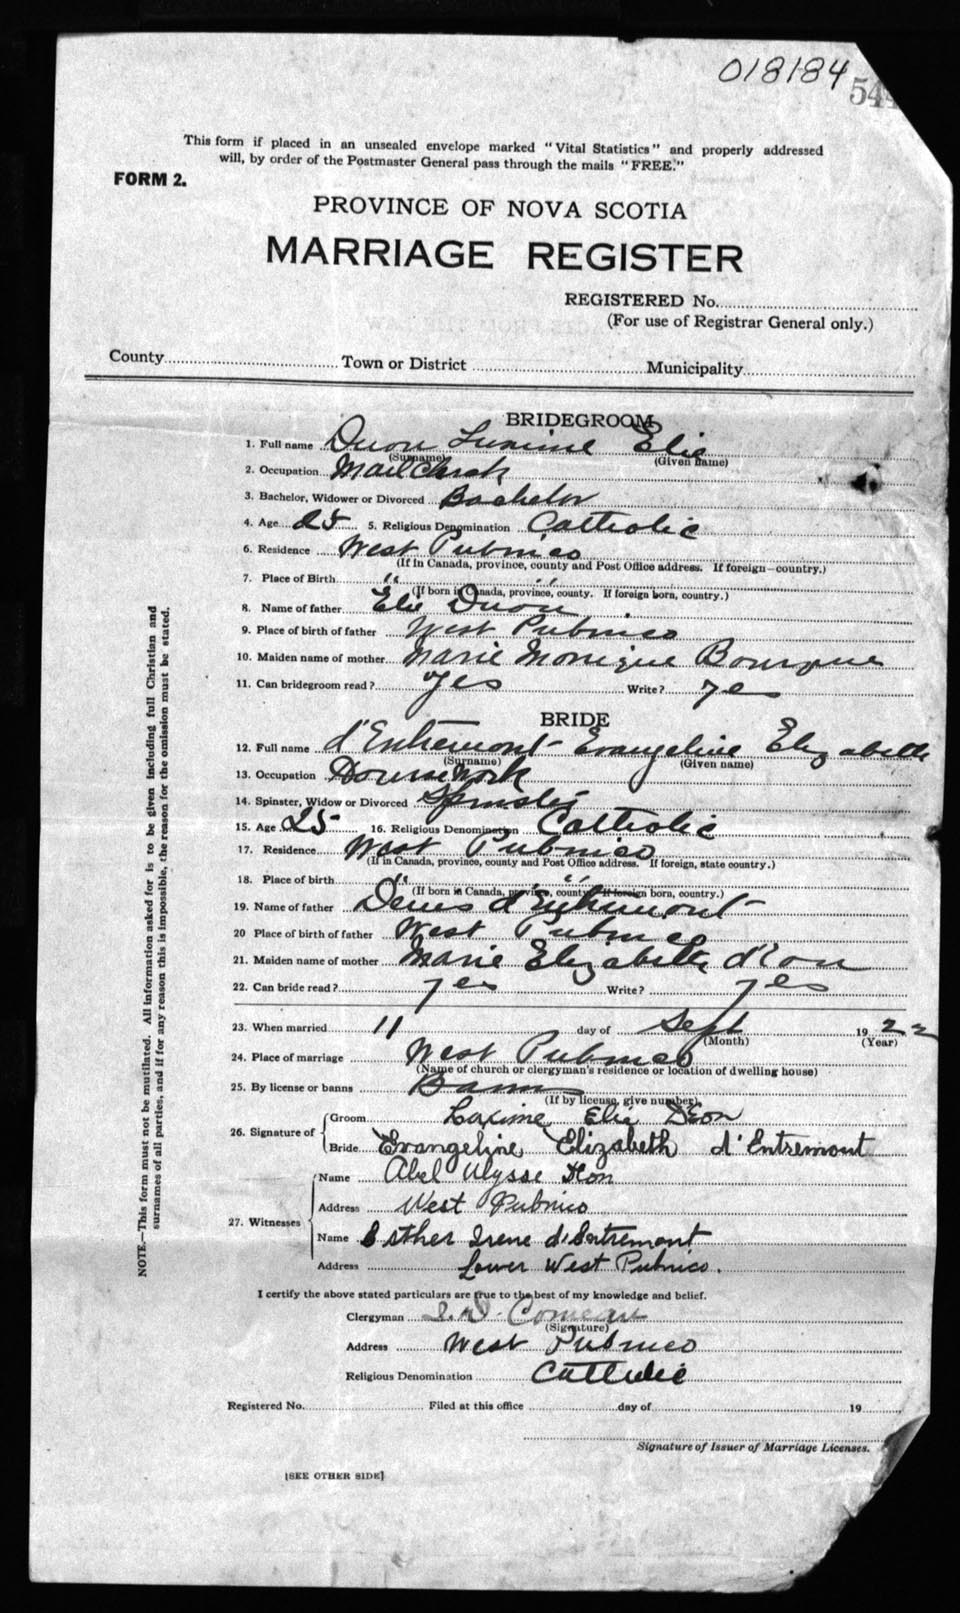 018184
544
This form if placed in an unsealed envelope marked "Vital Statistics" and properly addressed
will, by order of the Postmaster General pass through the mails "FREE."
FORM 2.
PROVINCE OF NOVA SCOTIA
MARRIAGE REGISTER
REGISTERED No.
(For use of Registrar General only.)
County Town or District Municipality
BRIDEGROOM
1. Full name Duon Elie
(Surname) (Given name)
2. Occupation Mail Clerk
3. Bachelor, Widower or Divorced Bachelor
4. Age 25 5. Religious Denomination Catholic
6. Residence West Pubnico
(If in Canada, province, county and Post Office address. If foreign—country.)
7. Place of Birth " "
(If born in Canada, province, county. If foreign born, country.)
8. Name of father Elie Duon
9. Place of birth of father West Pubnico
10. Maiden name of mother Marie Monique Bourque
11. Can bridegroom read? Yes Write? Yes
BRIDE
12. Full name d'Entremont Evangeline Elizabeth
(Surname) (Given name)
13. Occupation Housework
14. Spinster, Widow or Divorced Spinster
15. Age 25 16. Religious Denomination Catholic
17. Residence West Pubnico
(If in Canada, province, county and Post Office address. If foreign, state country.)
18. Place of birth " "
(If born in Canada, province, county. If foreign born, country.)
19. Name of father Denis d'Entremont
20 Place of birth of father West Pubnico
21. Maiden name of mother Marie Elizabeth d'Eon
22. Can bride read? yes Write? yes
23. When married 11 day of Sept 1922
(Month) (Year)
24. Place of marriage West Pubnico
(Name of church or clergyman's residence or location of dwelling house)
25. By license or banns Banns
(If by license, give number)
26. Signature of
Groom Elie Deon
Bride Evangeline Elizabeth d'Entremont
27. Witnesses
Name Abel Ulysse
Address West Pubnico
Name Esther Irene d'Entremont
Address Lower West Pubnico.
I certify the above stated particulars are true to the best of my knowledge and belief.
Clergyman Comeau
(Signature)
Address West Pubnico
Religious Denomination Catholic
Registered No. Filed at this office day of 19
Signature of Issuer of Marriage Licenses.
[SEE OTHER SIDE]
NOTE.—This form must not be mutilated. All information asked for is to be given including full Christian and
surnames of all parties, and if for any reason this is impossible, the reason for the omission must be stated.